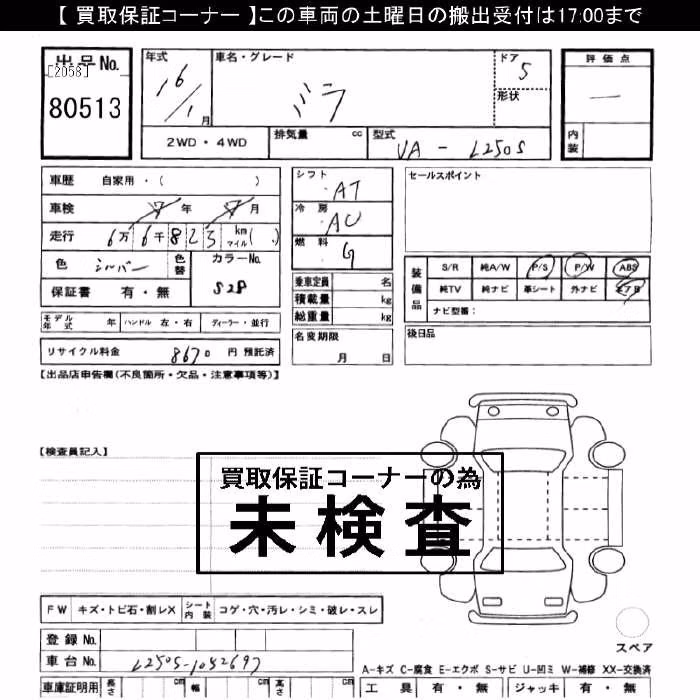 【 買取保証コーナー 】この車両の土曜日の搬出受付は17:00まで
出品No.
[2058]
80513
年式
16/1月
車名・グレード
ミラ
ドア
5
形状
評価点
―
内装
2WD・4WD
排気量 cc
型式
UA - L250S
車歴 自家用・( )
車検 年 月
走行 6万6千823 km マイル( )
色 シルバー
色替
カラーNo.
S28
保証書 有・無
シフト AT
冷房 AC
燃料 G
乗車定員 名
積載量 kg
総重量 kg
セールスポイント
装備品
S/R 純A/W P/S P/W ABS
純TV 純ナビ 革シート 外ナビ エアB
ナビ型番:
モデル年式 年 ハンドル 左・右 ディーラー・並行
リサイクル料金 8670 円 預託済
名変期限
月 日
後日品
【出品店申告欄(不良箇所・欠品・注意事項等)】
【検査員記入】
買取保証コーナーの為
未検査
FW キズ・トビ石・割レX シート内装 コゲ・穴・汚レ・シミ・破レ・スレ
スペア
登録No.
車台No. L250S-1052697
A-キズ C-腐食 E-エクボ S-サビ U-凹ミ W-補修 XX-交換済
車庫証明用 長さ cm 幅 cm 高さ cm
工具 有・無 ジャッキ 有・無